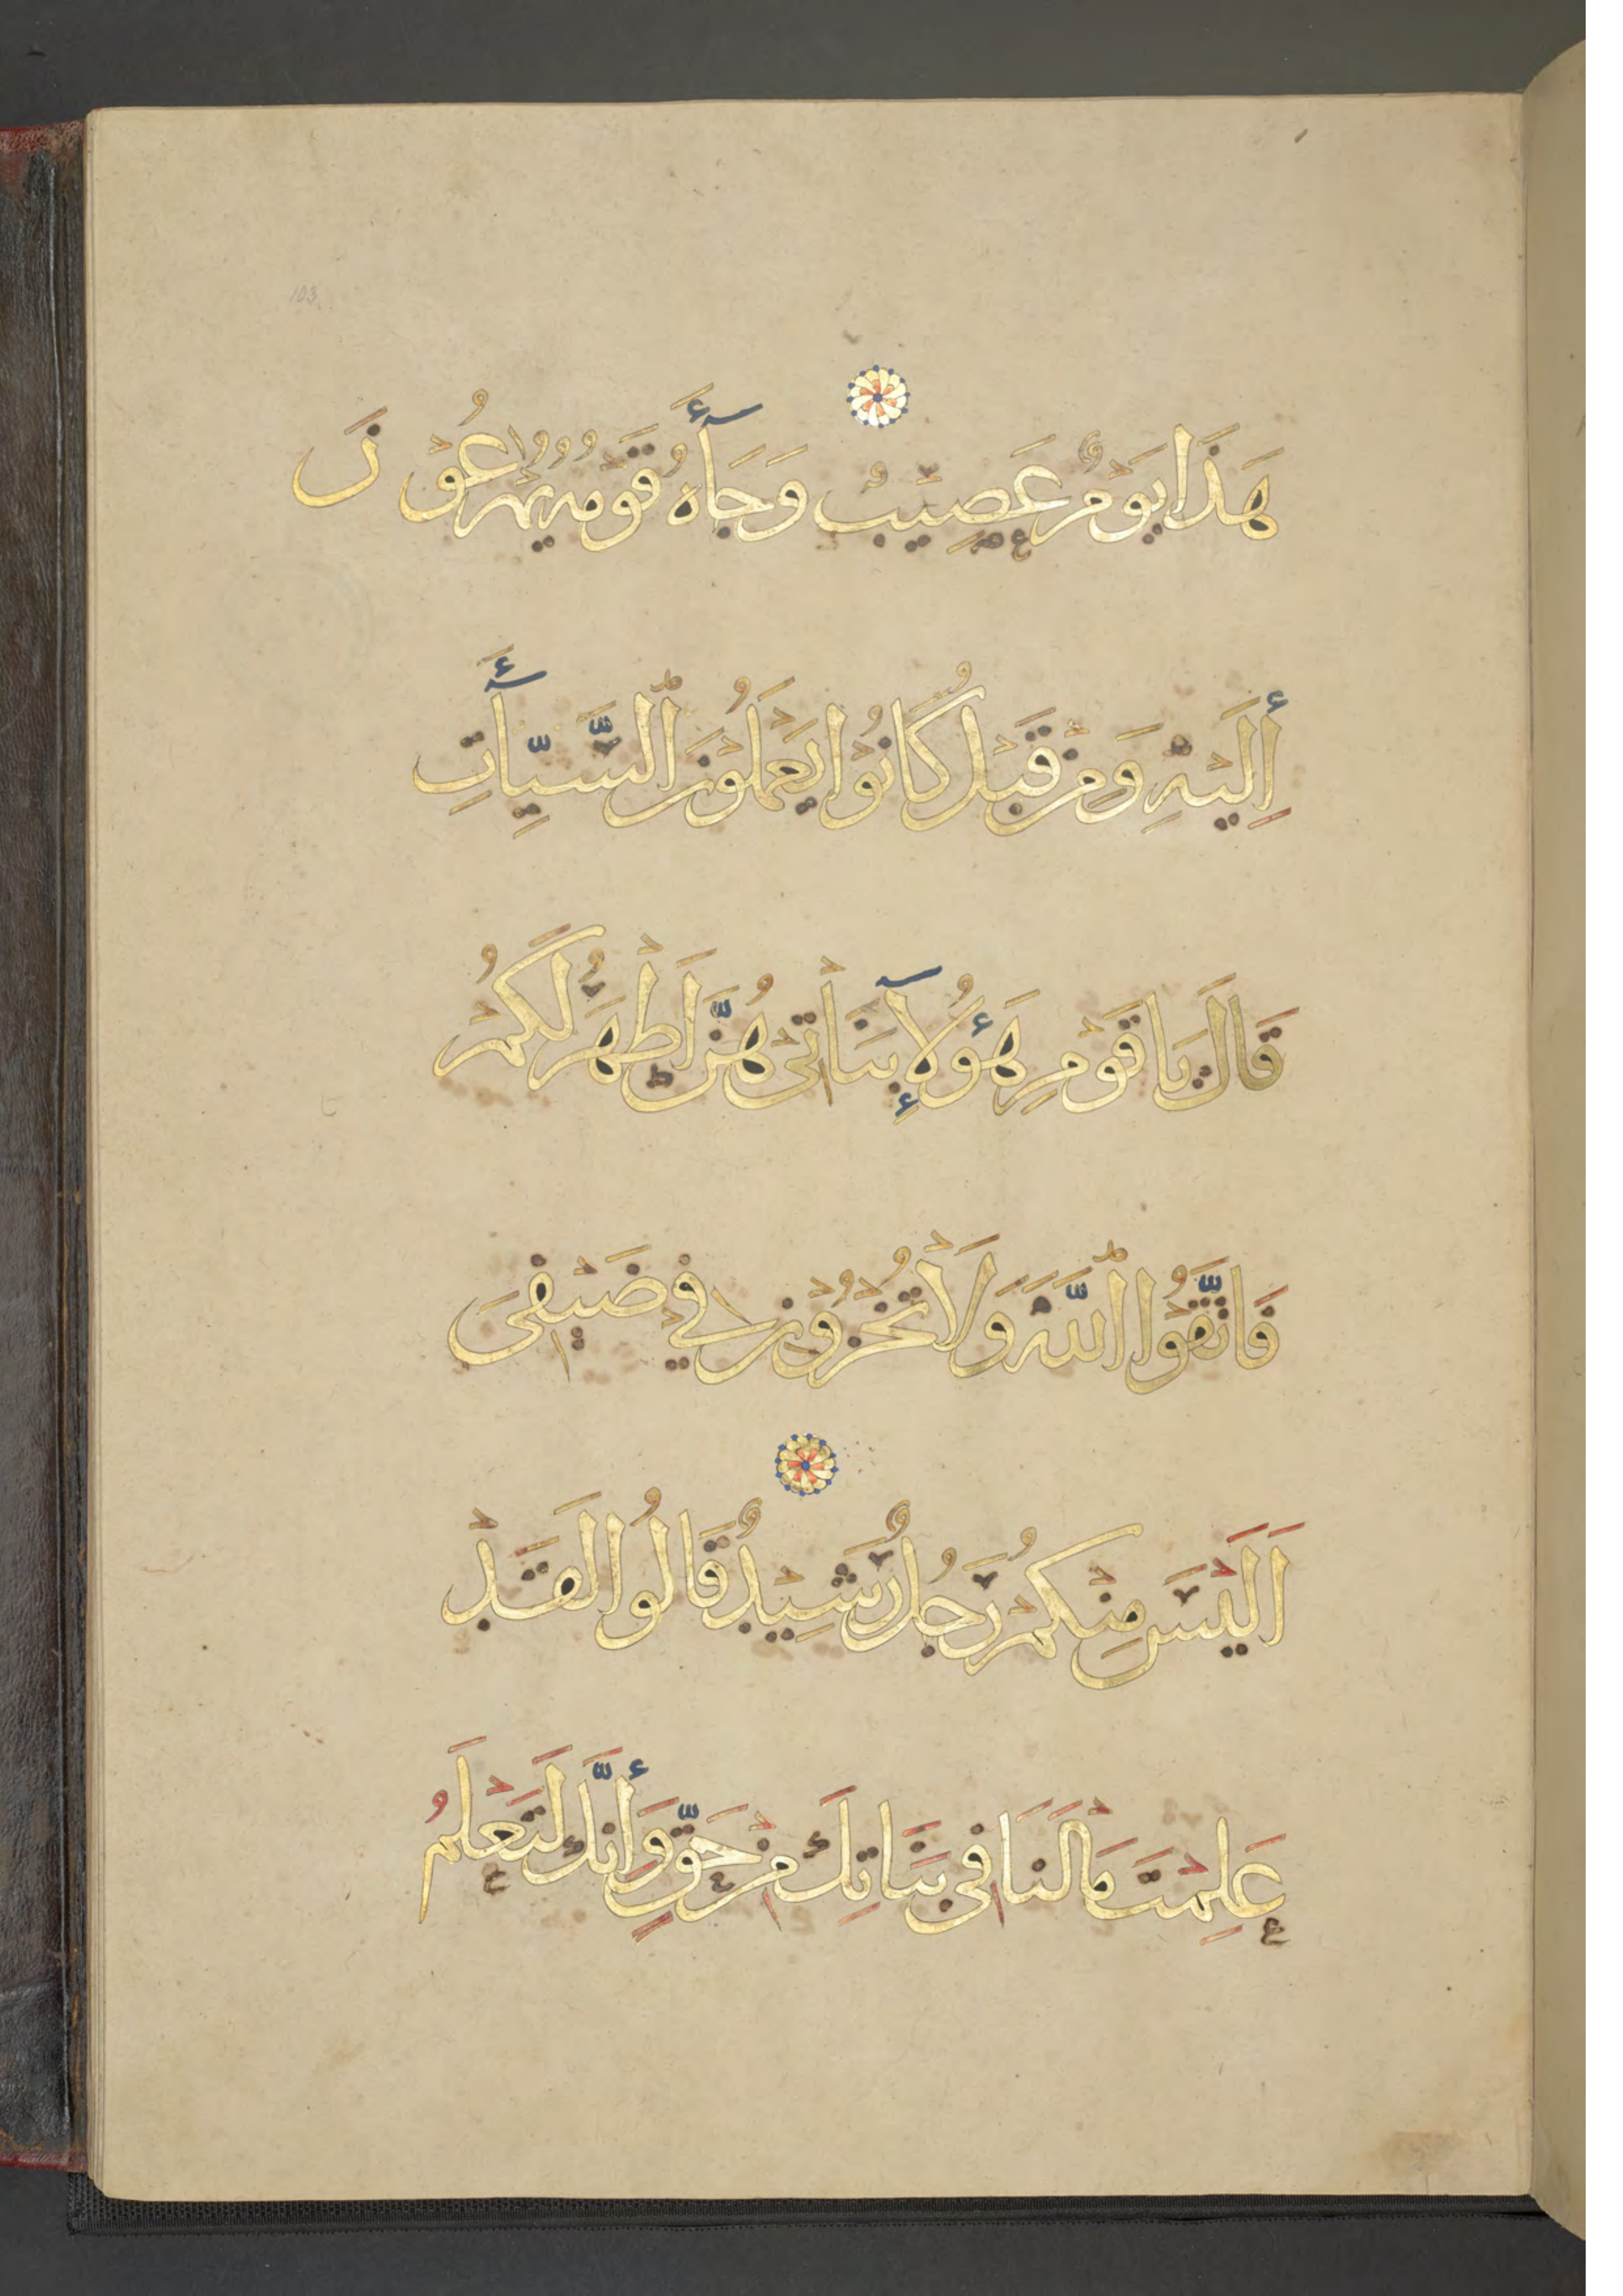 103
هَذَا يَوْمٌ عَصِيْبٌ وَجَآءَهُ قَوْمُهُ يُهْرَعُوْنَ
إِلَيْهِ وَمِنْ قَبْلُ كَانُوْا يَعْمَلُوْنَ السَّيِّآتِ
قَالَ يَا قَوْمِ هَؤُلَآءِ بَنَاتِىْ هُنَّ اَطْهَرُ لَكُمْ
فَاتَّقُوْا اللَّهَ وَلَا تُخْزُوْنِ فِيْ ضَيْفِىْ
اَلَيْسَ مِنْكُمْ رَجُلٌ رَشِيْدٌ قَالُوا لَقَدْ
عَلِمْتَ مَا لَنَا فِى بَنَاتِكَ مِنْ حَقٍّ وَإِنَّكَ لَتَعْلَمُ